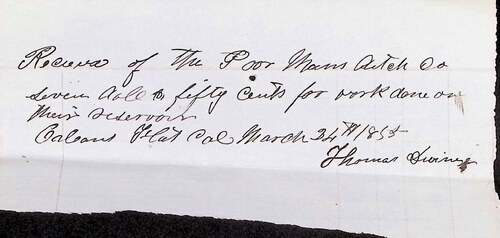 Recieved of the Poor Mans Ditch Co
seven dolls & fifty cents for work done on
their reservoir
Orleans Flat Cal March 24th 1855
Thomas